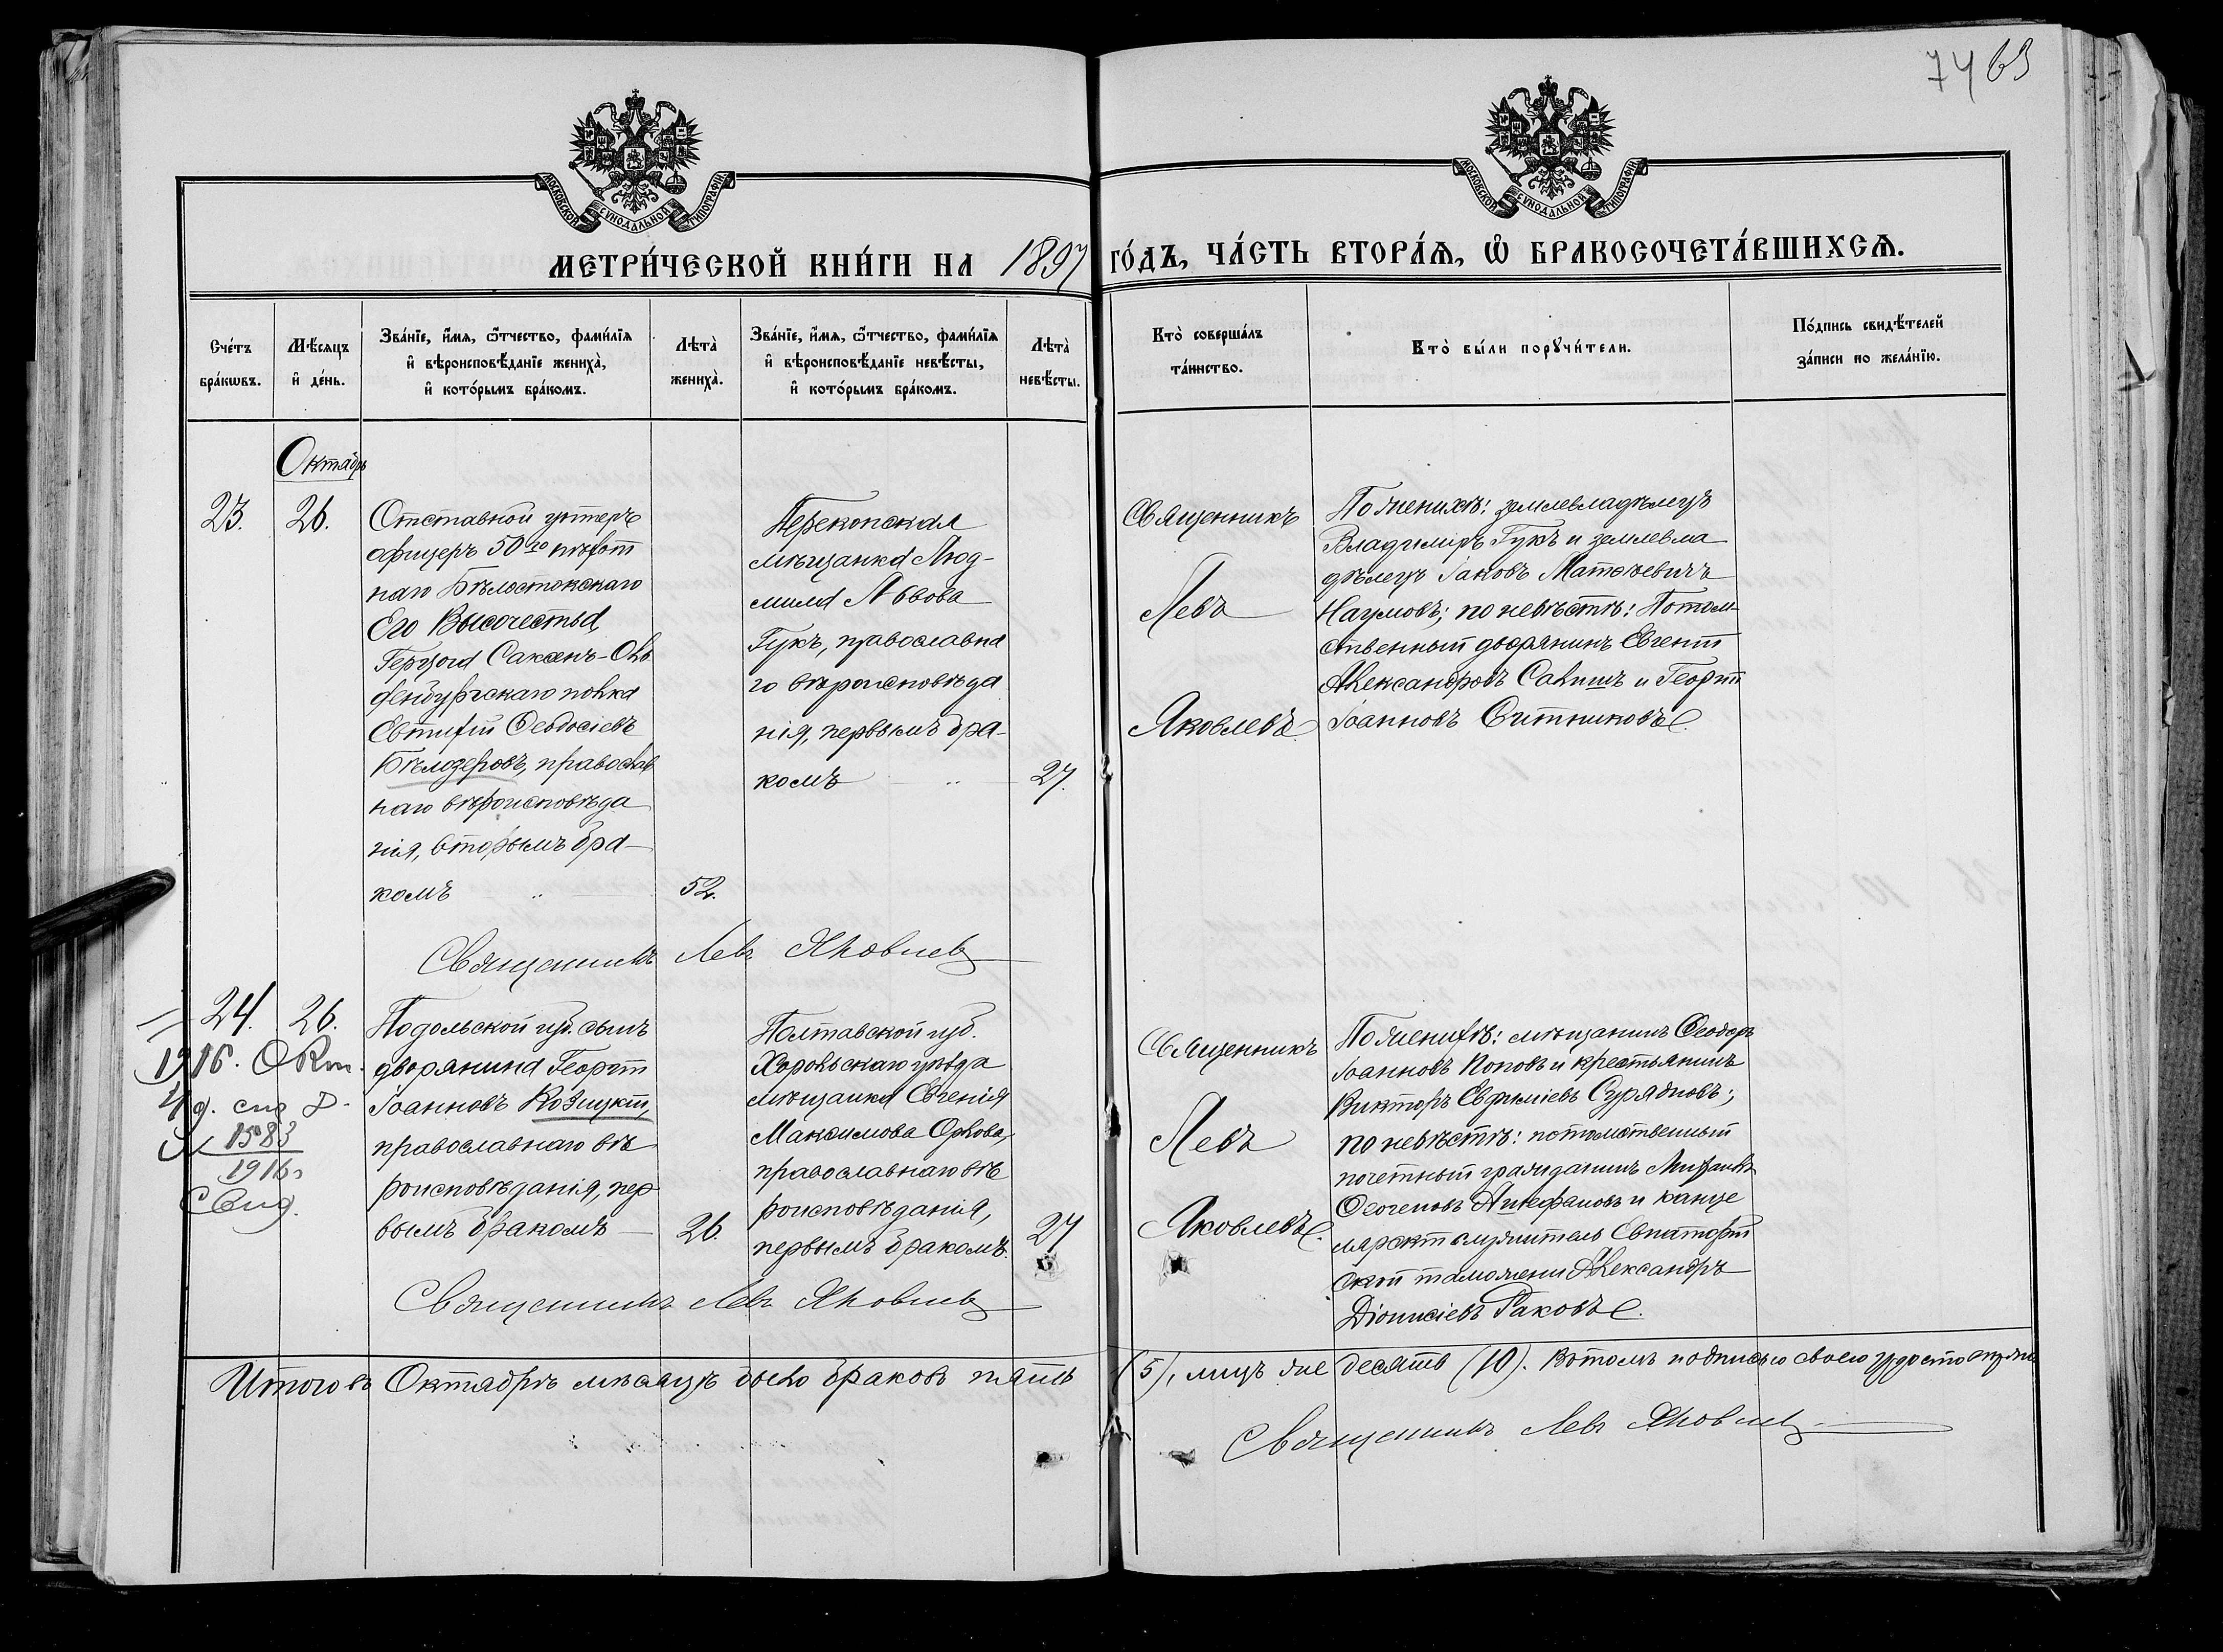 74 63
МОСКОВСКОЙ СѴНОДАЛЬНОЙ ТИПОГРАФІИ
МОСКОВСКОЙ СѴНОДАЛЬНОЙ ТИПОГРАФІИ
МЕТРИ́ЧЕСКОЙ КНИ́ГИ НА 1897 ГО́ДЪ, ЧА́СТЬ ВТОРА́Ѧ, Ѡ҆ БРАКОСОЧЕТА́ВШИХСѦ.
Сче́тъ
бра́кѡвъ.
Мѣ́сяцъ
и҆ де́нь.
Зва́нїе, и҆́мя, ѻ҆́тчество, фами́лїя
и҆ вѣроисповѣ́данїе жениха̀,
и҆ кото́рымъ бра́комъ.
Лѣта̀
жениха̀.
Зва́нїе, и҆́мя, ѻ҆́тчество, фами́лїя
и҆ вѣроисповѣ́данїе невѣ́сты,
и҆ кото́рымъ бра́комъ.
Лѣта̀
невѣ́сты.
Кто̀ соверша́лъ
та́инство.
Кто̀ бы́ли порꙋчи́тели.
По́дпись свидѣ́телей
за́писи по жела́нїю.
Октябрь
23.
26.
Отставной унтеръ
офицеръ 50го пѣхот
наго Бѣлостокскаго
Его Высочества,
Герцога Саксенъ-Оль
денбургскаго полка
Евтихій Ѳеодосіевъ
Бѣлозеровъ, православ
наго вѣроисповѣда
нія, вторымъ бра-
комъ
52.
Перекопская
мѣщанка Люд-
мила Львова
Гукъ, православна
го вѣроисповѣда
нія, первымъ бра-
комъ
27.
Священникъ
Левъ
Яковлевъ
По женихѣ: землевладѣлецъ
Владиміръ Гукъ и землевла
дѣлецъ Іаковъ Матѳеевичъ
Наумовъ; по невѣстѣ: Потом-
ственный дворянинъ Евгеній
Александровъ и Георгій
Іоанновъ Ситниковъ.
Священникъ Левъ Яковлевъ
24.
26.
1916. Окт.
1583
1916
Подольской губ. сынъ
дворянина Георгій
Іоанновъ Козицкій,
православнаго вѣ
роисповѣданія, пер
вымъ бракомъ
26.
Полтавской губ.
Хорольскаго уѣзда
мѣщанка Евгенія
Максимова Орлова,
православнаго вѣ
роисповѣданія,
первымъ бракомъ.
27
Священникъ
Левъ
Яковлевъ.
По женихѣ: мѣщанинъ Ѳеодоръ
Іоанновъ Поповъ и крестьянинъ
Викторъ Евфиміевъ
по невѣстѣ: потомственный
почетный гражданинъ
и канце
лярскій служитель Евпаторій
ской таможни Александръ
Діонисіевъ Раковъ.
Священникъ Левъ Яковлевъ
Итого въ Октябрѣ мѣсяцѣ было браковъ пять (5), лицъ же десять (10). Въ томъ подписью своею удостовѣряю
Священникъ Левъ Яковлевъ